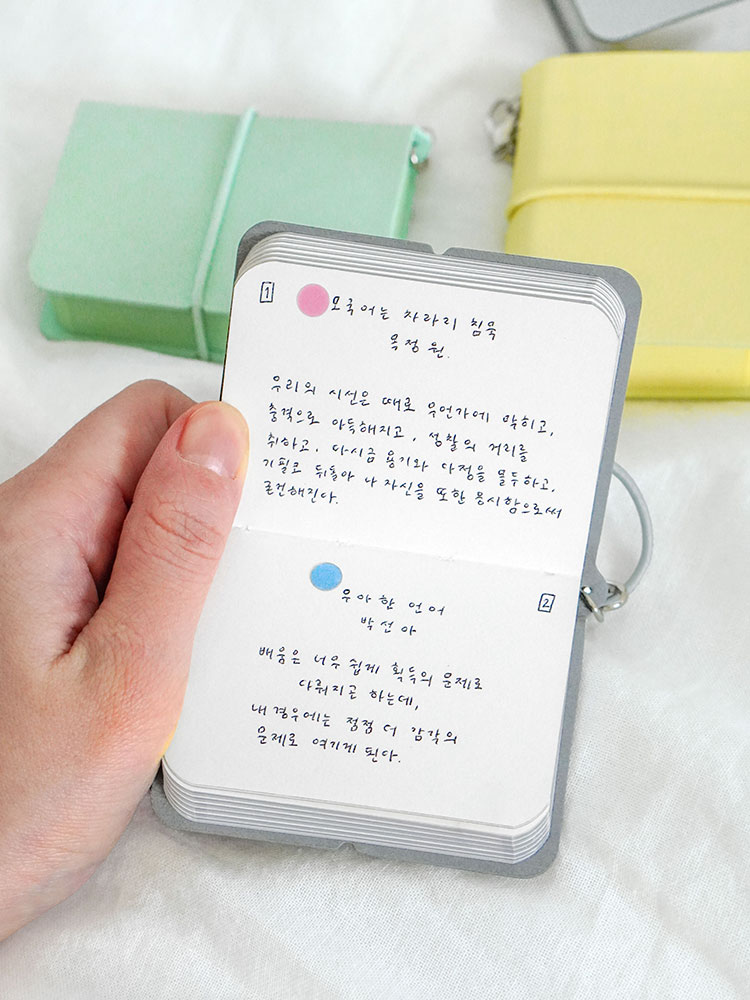 1
모국어는 차라리 침묵
목정원.
우리의 시선은 때로 무언가에 막히고,
충격으로 아득해지고, 성찰의 거리를
취하고, 다시금 용기와 다정을 물두하고,
기필코 뒤돌아 나 자신을 또한 응시함으로써
굳건해진다.
우아한 언어
박선아
2
배움은 너무 쉽게 획득의 문제로
다뤄지곤 하는데,
내 경우에는 점점 더 감각의
문제로 여기게 된다.